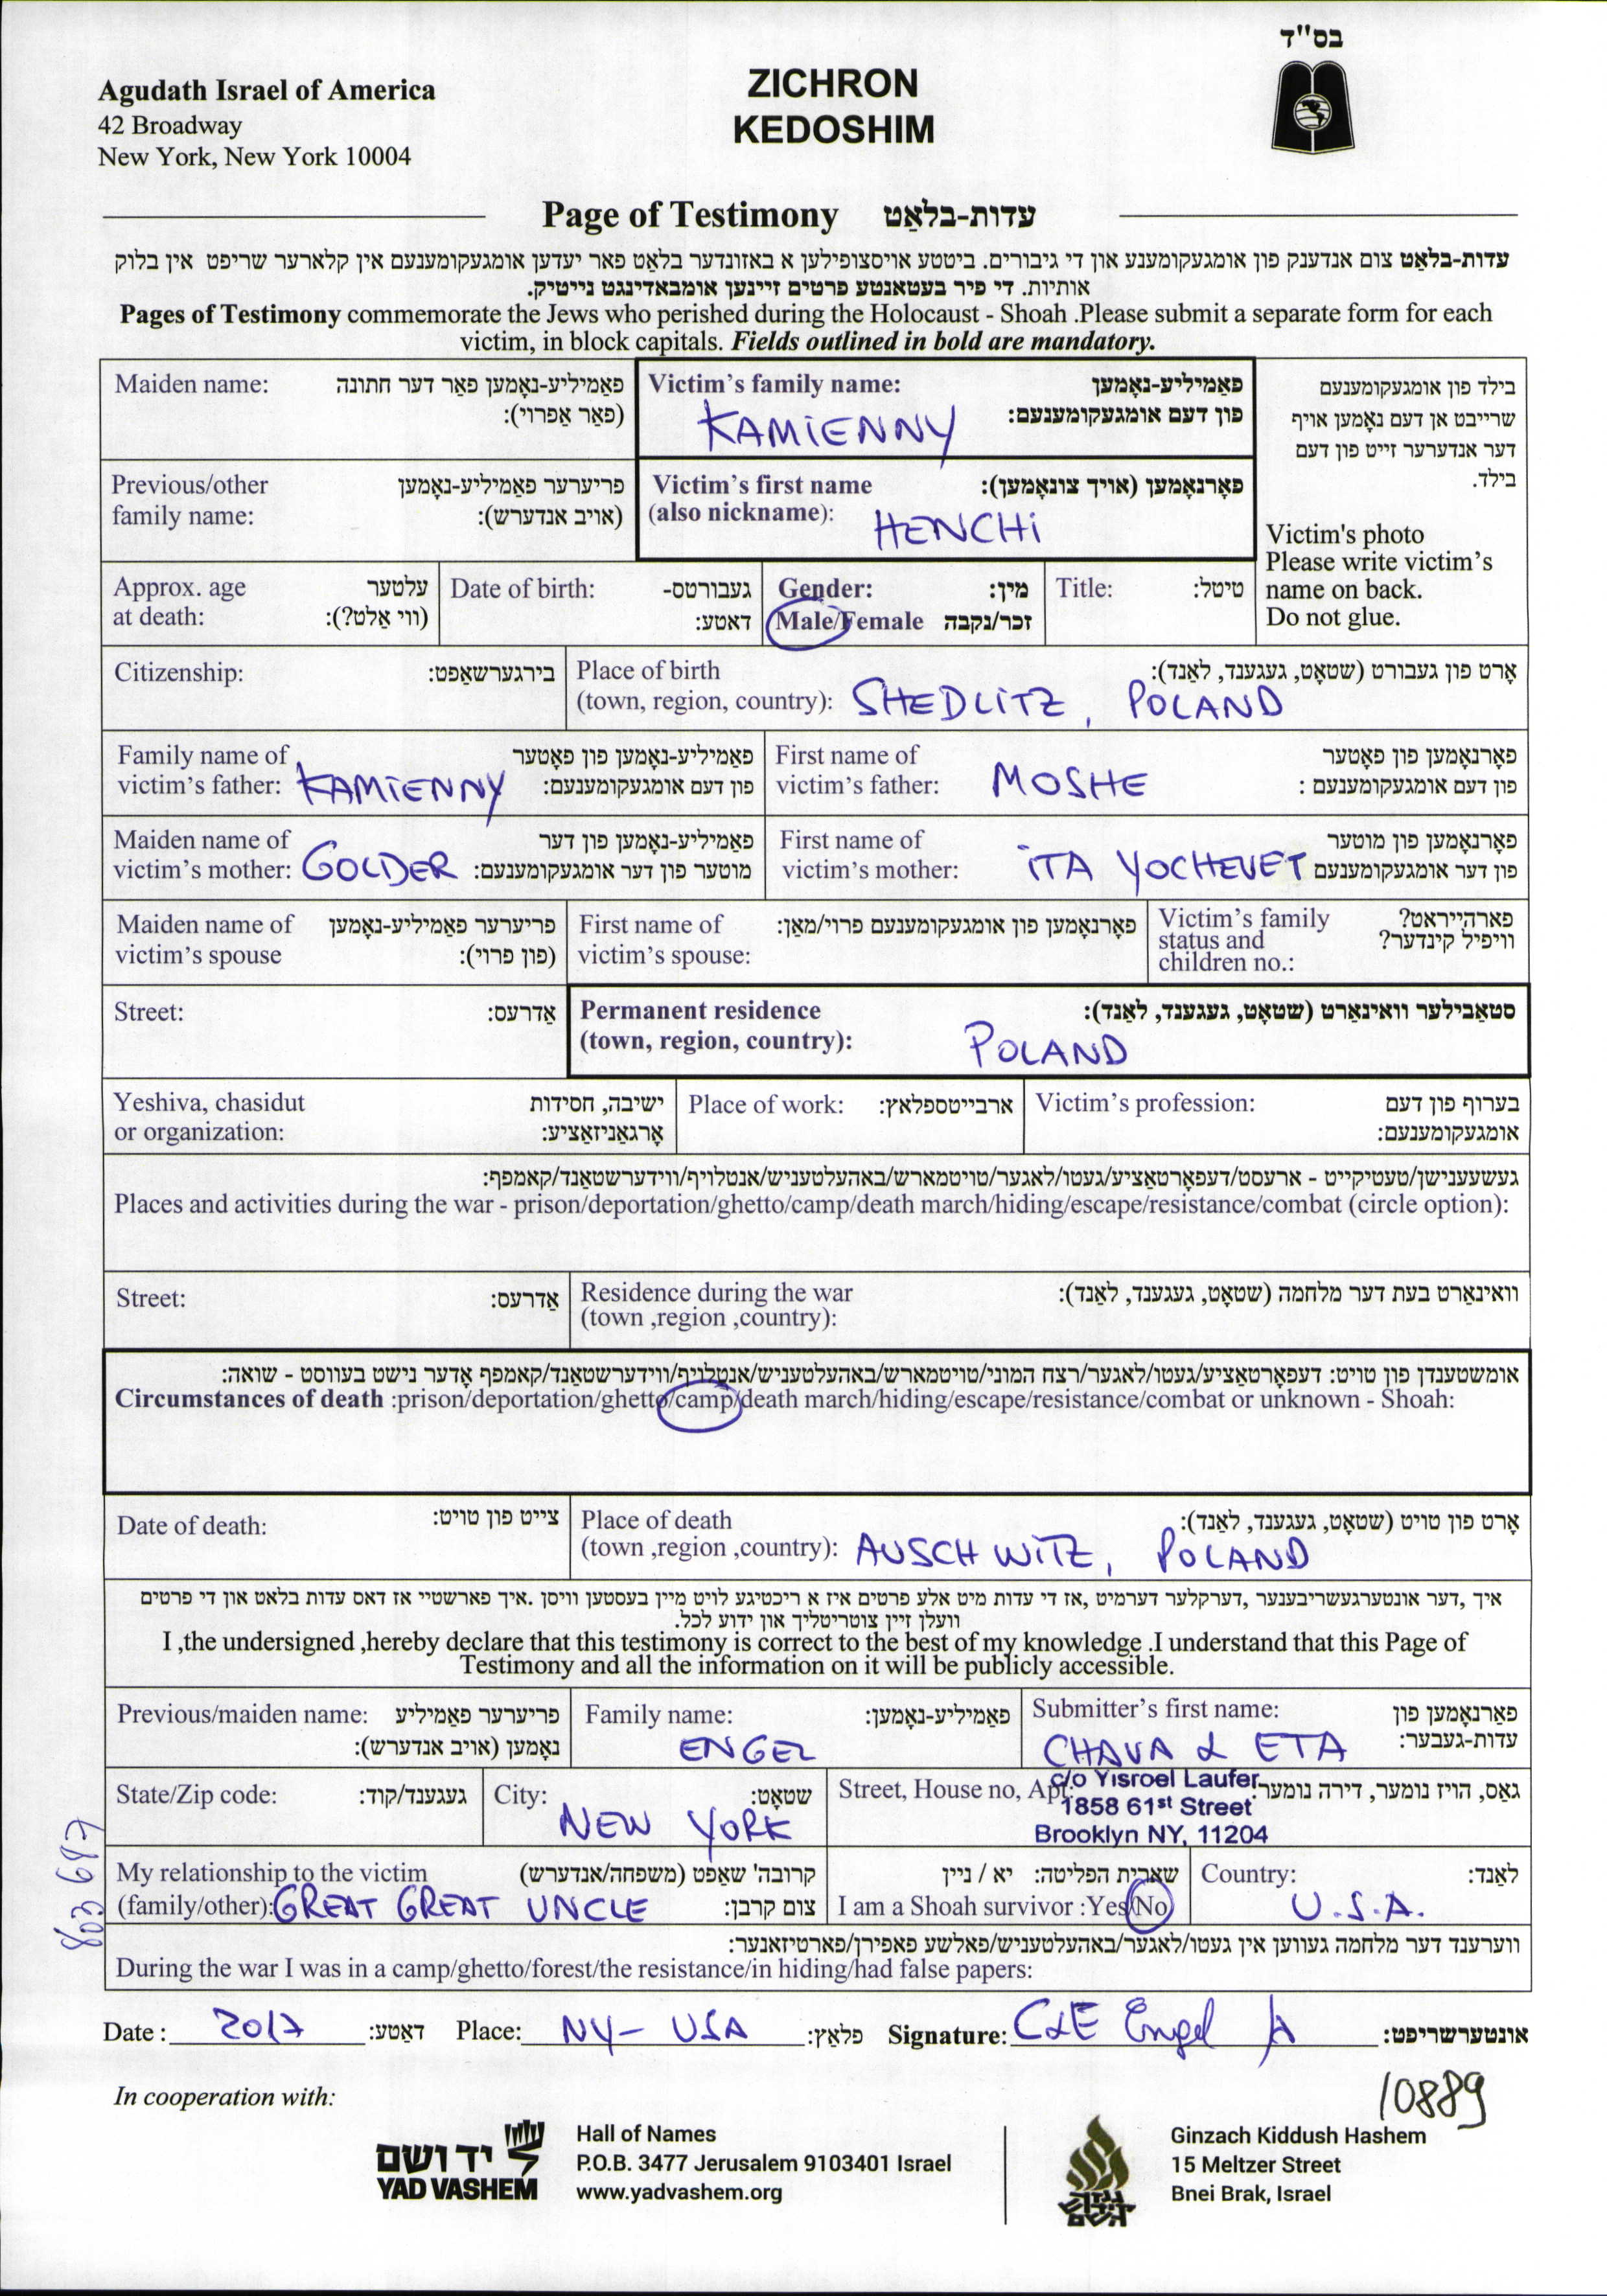 בס"ד
Agudath Israel of America
42 Broadway
New York, New York 10004
ZICHRON
KEDOSHIM
Page of Testimony עדות-בלאַט
עדות-בלאַט צום אנדענק פון אומגעקומענע און די גיבורים. ביטטע אויסצופילען א באזונדער בלאַט פאר יעדען אומגעקומענעם אין קלארער שריפט אין בלוק
אותיות. די פיר בעטאנטע פרטים זיינען אומבאדינגט נייטיק.
Pages of Testimony commemorate the Jews who perished during the Holocaust - Shoah .Please submit a separate form for each
victim, in block capitals. Fields outlined in bold are mandatory.
Maiden name: פאַמיליע-נאָמען פאַר דער חתונה
(פאַר אַפרוי):
Victim's family name: פאַמיליע-נאָמען
פון דעם אומגעקומענעם:
KAMIENNY
בילד פון אומגעקומענעם
שרייבט אן דעם נאָמען אויף
דער אנדערער זייט פון דעם
בילד.
Victim's photo
Please write victim's
name on back.
Do not glue.
Previous/other פריערער פאַמיליע-נאָמען
family name: (אויב אנדערש):
Victim's first name פאָרנאָמען (אויך צונאָמען):
(also nickname): HENCHI
Approx. age עלטער
at death: (ווי אַלט?):
Date of birth: געבורטס-
דאטע:
Gender: מין:
Male/Female זכר/נקבה
Title: טיטל:
Citizenship: בירגערשאַפט:
Place of birth אָרט פון געבורט (שטאָט, געגענד, לאַנד):
(town, region, country): SHEDLITZ, POLAND
Family name of פאַמיליע-נאָמען פון פאָטער
victim's father: KAMIENNY פון דעם אומגעקומענעם:
First name of פאָרנאָמען פון פאָטער
victim's father: MOSHE פון דעם אומגעקומענעם :
Maiden name of פאַמיליע-נאָמען פון דער
victim's mother: GOLDER מוטער פון דער אומגעקומענעם:
First name of פאָרנאָמען פון מוטער
victim's mother: ITA YOCHEVET פון דער אומגעקומענעם
Maiden name of פריערער פאַמיליע-נאָמען
victim's spouse (פון פרוי):
First name of פאָרנאָמען פון אומגעקומענעם פרוי/מאַן:
victim's spouse:
Victim's family פארהייראט?
status and וויפיל קינדער?
children no.:
Street: אַדרעס:
Permanent residence סטאַבילער וואוינאָרט (שטאָט, געגענד, לאַנד):
(town, region, country): POLAND
Yeshiva, chasidut ישיבה, חסידות
or organization: אָרגאַניזאַציע:
Place of work: ארבייטספלאץ:
Victim's profession: בערוף פון דעם
אומגעקומענעם:
געשעענישן/טעטיקייט - ארעסט/דעפאָרטאַציע/געטו/לאגער/טויטמארש/באהעלטעניש/אנטלויף/ווידערשטאַנד/קאמפף:
Places and activities during the war - prison/deportation/ghetto/camp/death march/hiding/escape/resistance/combat (circle option):
Street: אַדרעס:
Residence during the war וואוינאָרט בעת דער מלחמה (שטאָט, געגענד, לאַנד):
(town ,region ,country):
אומשטענדן פון טויט: דעפאָרטאַציע/געטו/לאגער/רצח המוני/טויטמארש/באהעלטעניש/אנטלויף/ווידערשטאַנד/קאמפף אָדער נישט בעווסט - שואה:
Circumstances of death :prison/deportation/ghetto/camp/death march/hiding/escape/resistance/combat or unknown - Shoah:
Date of death: צייט פון טויט:
Place of death אָרט פון טויט (שטאָט, געגענד, לאַנד):
(town ,region ,country): AUSCHWITZ, POLAND
איך ,דער אונטערגעשריבענער ,דערקלער דערמיט ,אז די עדות מיט אלע פרטים איז א ריכטיגע לויט מיין בעסטען וויסן .איך פארשטיי אז דאס עדות בלאט און די פרטים
וועלן זיין צוטריטליך און ידוע לכל.
I ,the undersigned ,hereby declare that this testimony is correct to the best of my knowledge .I understand that this Page of
Testimony and all the information on it will be publicly accessible.
Previous/maiden name: פריערער פאַמיליע
נאָמען (אויב אנדערש):
Family name: פאַמיליע-נאָמען:
ENGEL
Submitter's first name: פאַרנאָמען פון
עדות-געבער:
CHAVA & ETA
State/Zip code: געגענד/קוד:
City: שטאָט:
NEW YORK
Street, House no, Apt: גאַס, הויז נומער, דירה נומער:
c/o Yisroel Laufer
1858 61st Street
Brooklyn NY, 11204
My relationship to the victim קרובה' שאַפט (משפחה/אנדערש)
(family/other): GREAT GREAT UNCLE צום קרבן:
שארית הפליטה: יא / ניין
I am a Shoah survivor :Yes/No
Country: לאַנד:
U.S.A.
ווערענד דער מלחמה געווען אין געטו/לאגער/באהעלטעניש/פאלשע פאפירן/פארטיזאנער:
During the war I was in a camp/ghetto/forest/the resistance/in hiding/had false papers:
Date : 2017 דאַטע: Place: NY- USA פלאַץ: Signature: C&E Engel אונטערשריפט:
10889
In cooperation with:
יד ושם
YAD VASHEM
Hall of Names
P.O.B. 3477 Jerusalem 9103401 Israel
www.yadvashem.org
Ginzach Kiddush Hashem
15 Meltzer Street
Bnei Brak, Israel